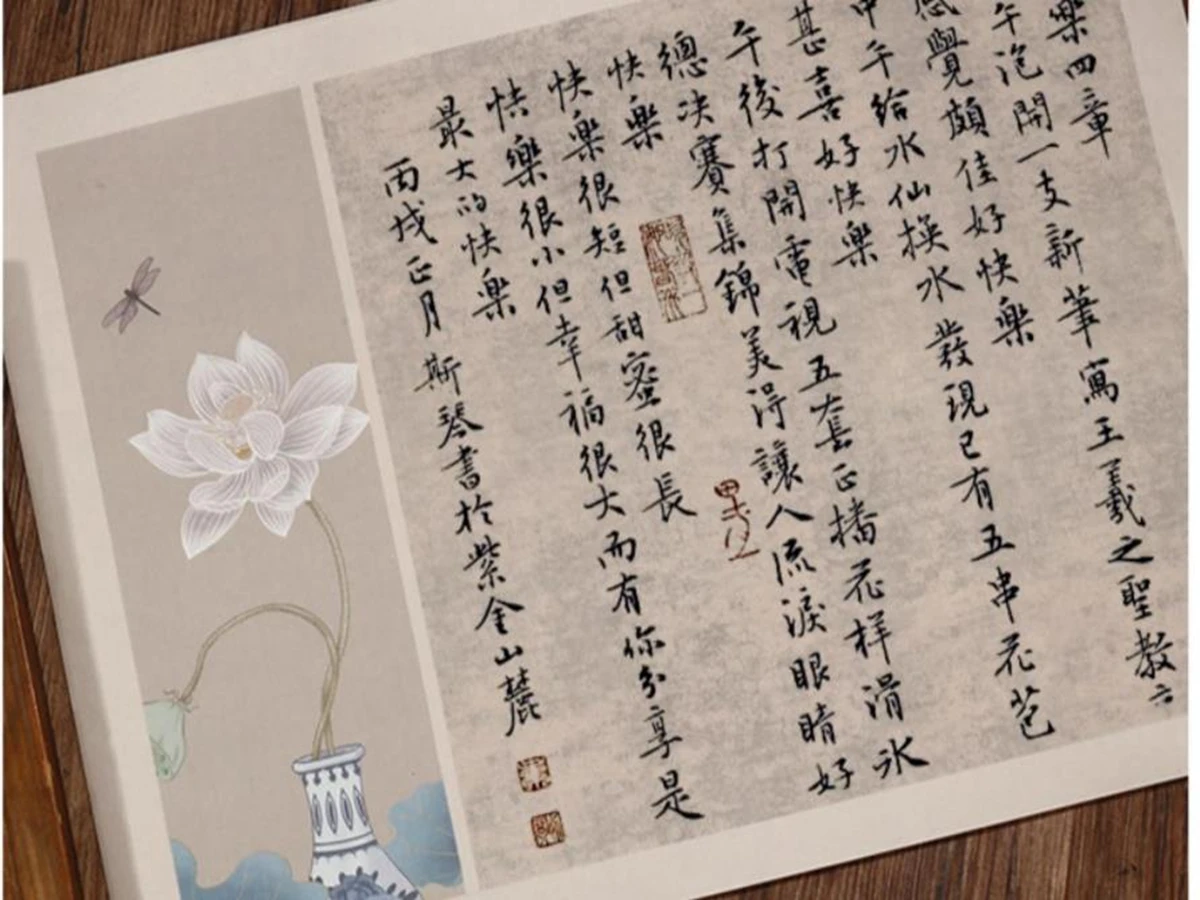 樂四章
午泡開一支新筆寫王羲之聖教
感覺頗佳好快樂
中午給水仙換水發現已有五串花苞
甚喜好快樂
午後打開電視五套正播花樣滑冰
總决賽集錦美得讓人流淚眼睛好
快樂
快樂很短但甜蜜很長
快樂很小但幸福很大而有你分享是
最大的快樂
丙戌正月斯琴書於紫金山麓